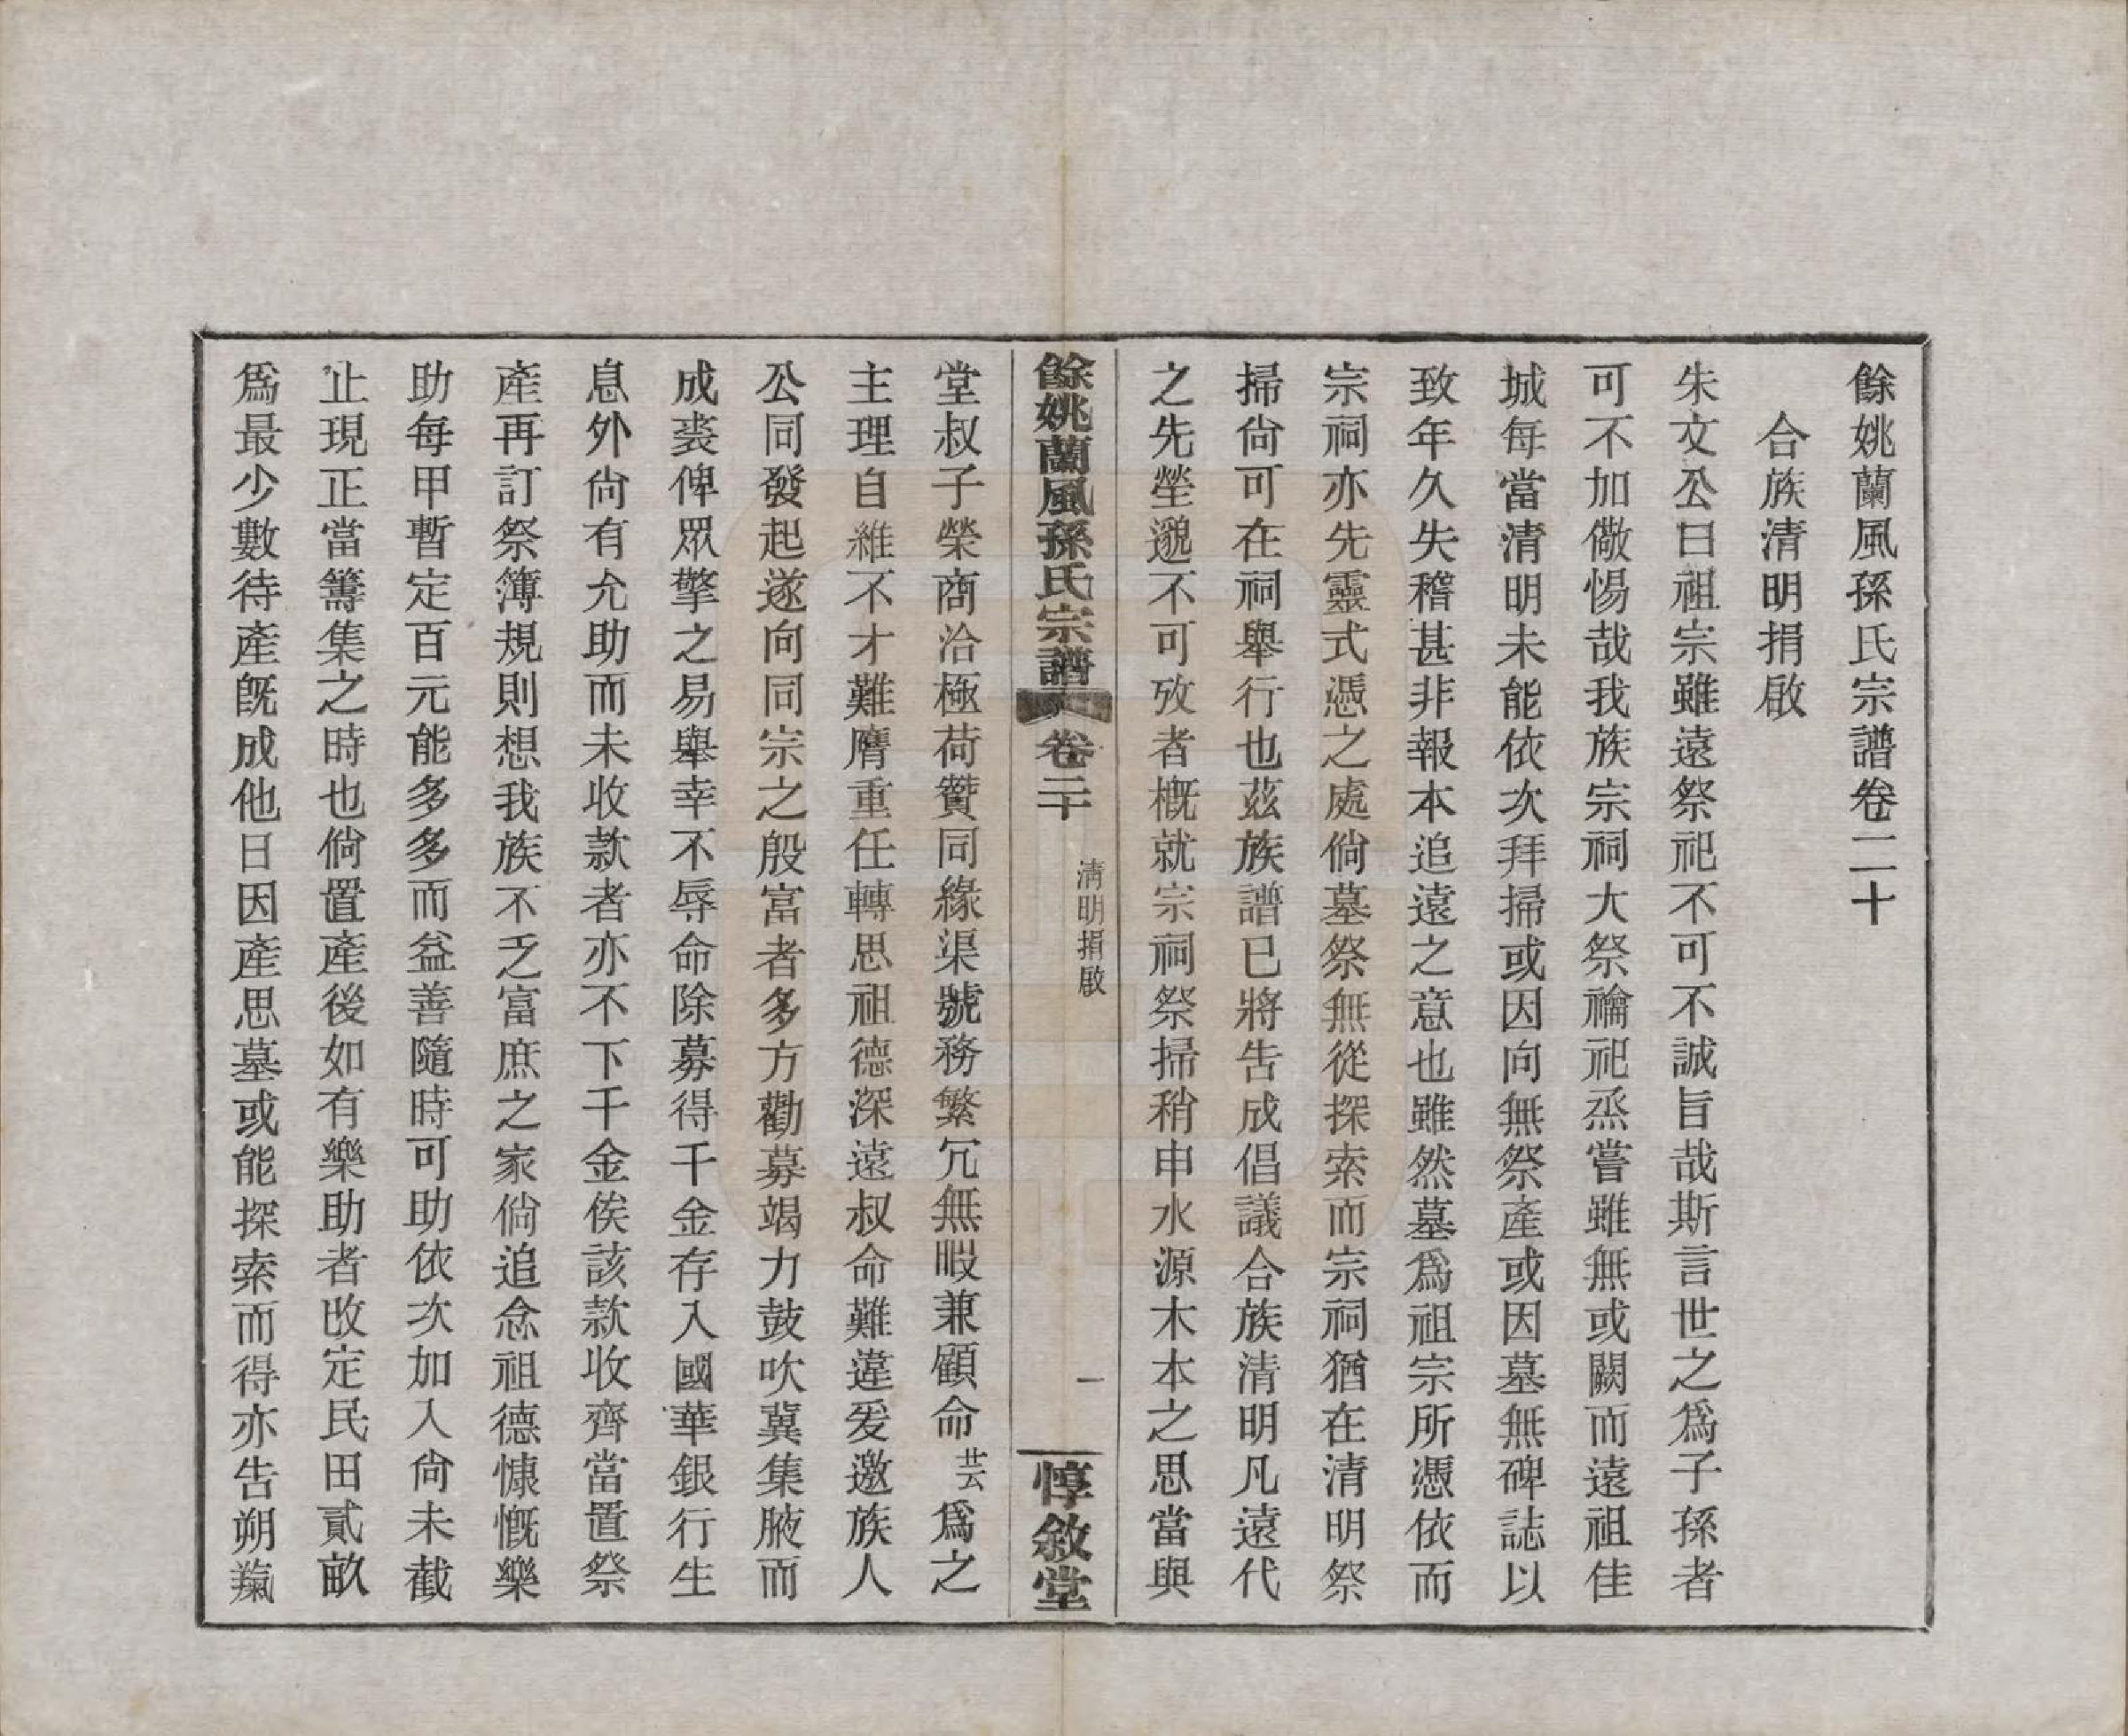 餘姚蘭風孫氏宗譜卷二十
合族清明捐啟
朱文公曰祖宗雖遠祭祀不可不誠旨哉斯言世之爲子孫者
可不加儆惕哉我族宗祠大祭禴祀烝嘗雖無或闕而遠祖佳
城每當清明未能依次拜掃或因向無祭產或因墓無碑誌以
致年久失稽甚非報本追遠之意也雖然墓爲祖宗所憑依而
宗祠亦先靈式憑之處倘墓祭無從探索而宗祠猶在清明祭
掃尙可在祠舉行也茲族譜已將告成倡議合族清明凡遠代
之先塋邈不可攷者槪就宗祠祭掃稍申水源木本之思當與
餘姚蘭風孫氏宗譜
卷二十
清明捐啟
一
惇敘堂
堂叔子榮商洽極荷贊同緣渠號務繁冗無暇兼顧命芸爲之
主理自維不才難膺重任轉思祖德深遠叔命難違爰邀族人
公同發起遂向同宗之殷富者多方勸募竭力鼓吹冀集腋而
成裘俾眾擎之易舉幸不辱命除募得千金存入國華銀行生
息外尙有允助而未收款者亦不下千金俟該款收齊當置祭
產再訂祭簿規則想我族不乏富庶之家倘追念祖德慷慨樂
助每甲暫定百元能多多而益善隨時可助依次加入尙未截
止現正當籌集之時也倘置產後如有樂助者改定民田貳畝
爲最少數待產旣成他日因產思墓或能探索而得亦告朔羵